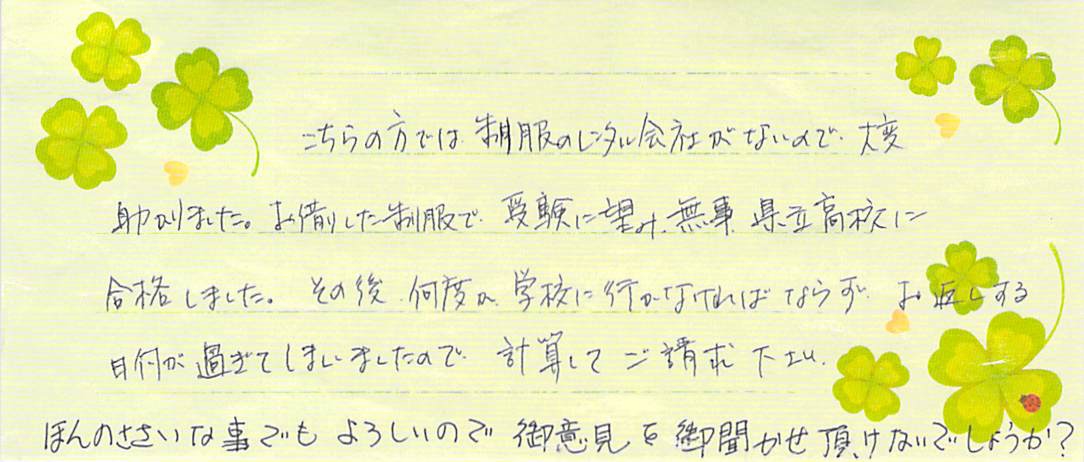 こちらの方では、制服のレンタル会社がないので、大変
助かりました。お借りした制服で、受験に望み、無事、県立高校に
合格しました。その後、何度か、学校に行かなければならず、お返しする
日付が過ぎてしまいましたので、計算してご請求下さい。
ほんのささいな事でもよろしいので御意見を御聞かせ頂けないでしょうか?